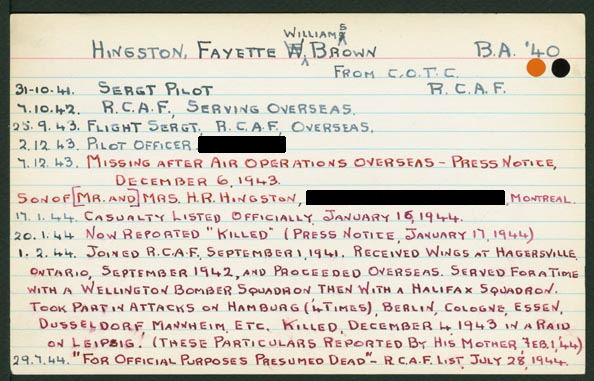 WILLIAMS
HINGSTON, FAYETTE W, BROWN B.A. '40
FROM C.O.T.C.
31-10-41. SERGT PILOT R.C.A.F.
7.10.42. R.C.A.F., SERVING OVERSEAS.
25.9.43. FLIGHT SERGT. R.C.A.F. OVERSEAS.
2.12.43. PILOT OFFICER
7.12.43. MISSING AFTER AIR OPERATIONS OVERSEAS - PRESS NOTICE,
DECEMBER 6, 1943.
SON OF [MR. AND] MRS. H.R. HINGSTON, , MONTREAL.
17.1.44. CASUALTY LISTED OFFICIALLY, JANUARY 15, 1944.
20.1.44 NOW REPORTED "KILLED" (PRESS NOTICE, JANUARY 17, 1944)
1.2.44. JOINED R.C.A.F., SEPTEMBER 1, 1941. RECEIVED WINGS AT HAGERSVILLE,
ONTARIO, SEPTEMBER 1942, AND PROCEEDED OVERSEAS. SERVED FOR A TIME
WITH A WELLINGTON BOMBER SQUADRON THEN WITH A HALIFAX SQUADRON.
TOOK PART IN ATTACKS ON HAMBURG (4 TIMES), BERLIN, COLOGNE, ESSEN,
DUSSELDORF, MANNHEIM, ETC. KILLED, DECEMBER 4 1943 IN A RAID
ON LEIPSIG! (THESE PARTICULARS REPORTED BY HIS MOTHER, FEB. 1, '44)
29.7.44. "FOR OFFICIAL PURPOSES PRESUMED DEAD" - R.C.A.F. LIST, JULY 28, 1944.